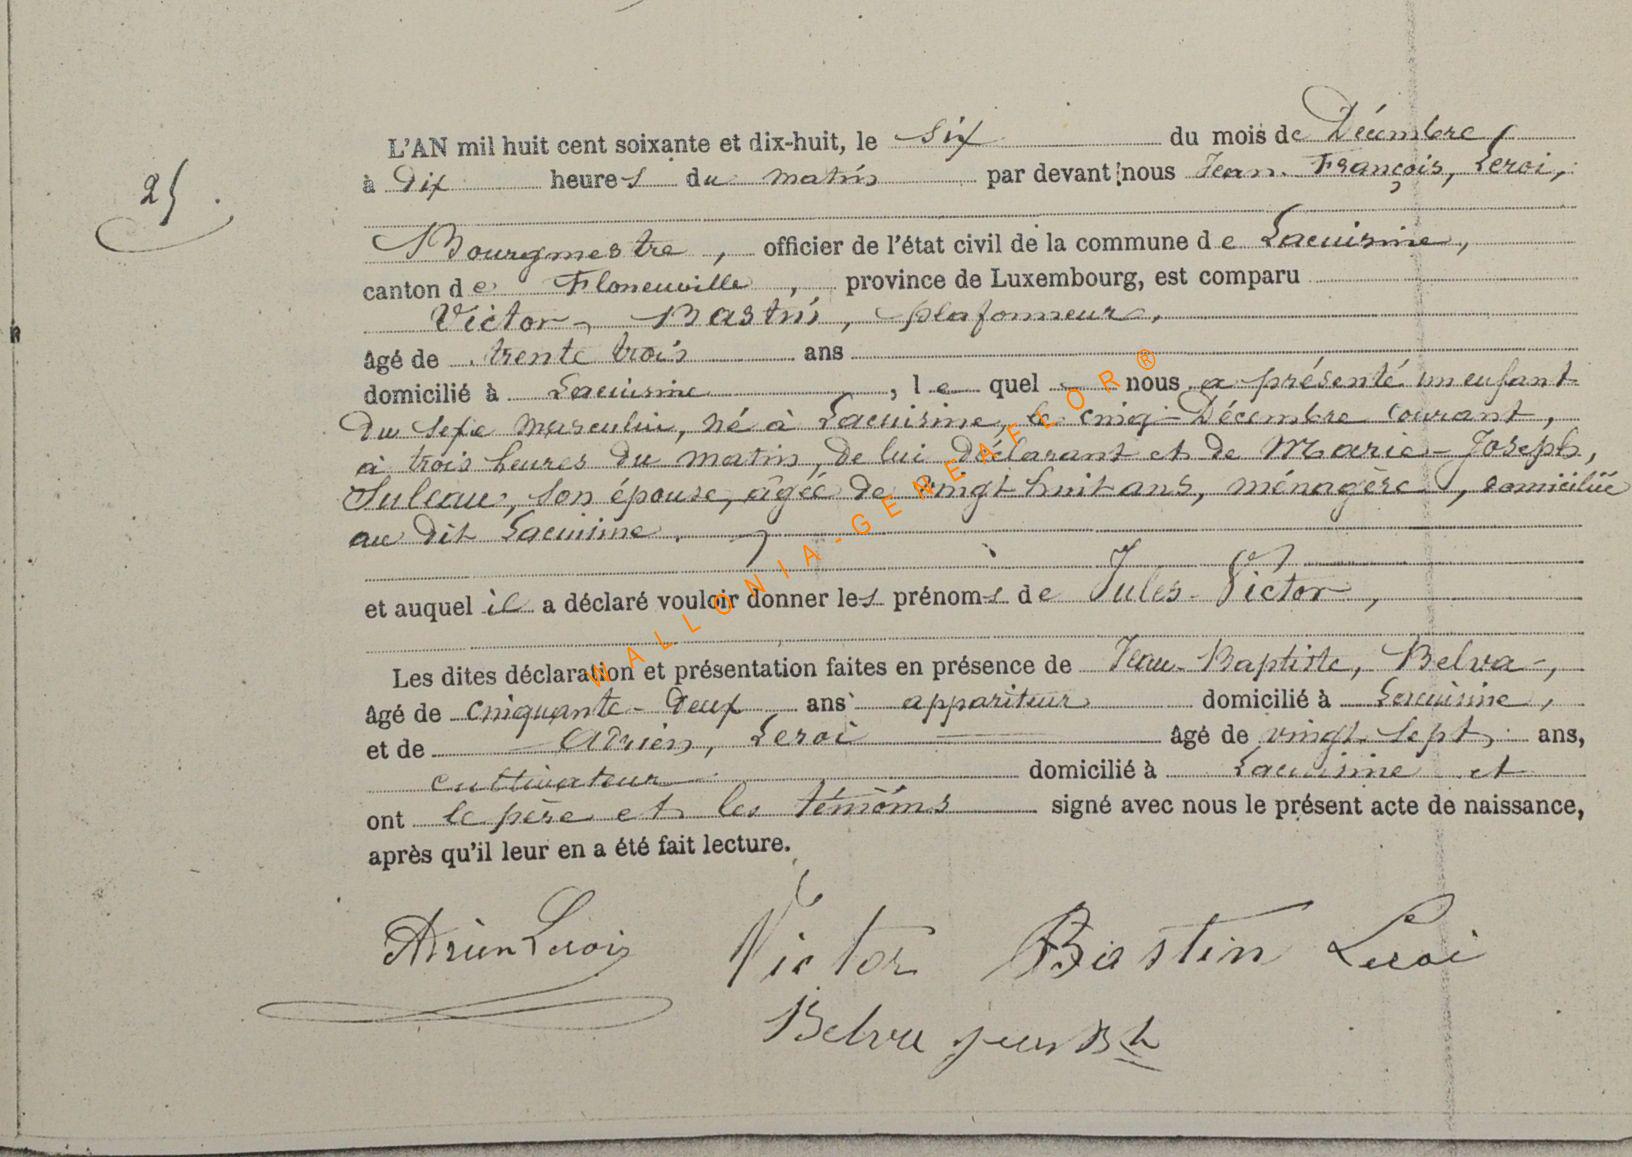 L'AN mil huit cent soixante et dix-huit, le six du mois de Décembre,
25.
à dix heures du matin par devant nous Jean-François, Leroi,
Bourgmestre, officier de l'état civil de la commune de Lacuisine,
canton de Floneuville, province de Luxembourg, est comparu
Victor, Bastin, plafonneur,
âgé de trente trois ans
domicilié à Lacuisine, lequel nous a présenté un enfant
du sexe masculin, né à Lacuisine, le cinq Décembre courant,
à trois heures du matin, de lui déclarant et de Marie-Joseph,
Suleau, son épouse, âgée de vingt huit ans, ménagère, domiciliée
au dit Lacuisine.
et auquel il a déclaré vouloir donner les prénoms de Jules-Victor,
Les dites déclaration et présentation faites en présence de Jean-Baptiste, Belva,
âgé de cinquante-deux ans appariteur domicilié à Lacuisine,
et de Adrien, Leroi âgé de vingt-sept ans,
cultivateur domicilié à Lacuisine et
ont le père et les témoins signé avec nous le présent acte de naissance,
après qu'il leur en a été fait lecture.
WALLONIA-GENEAFLOR®
Adrien Lerois Victor Bastin Leroi
Belva jean Bte